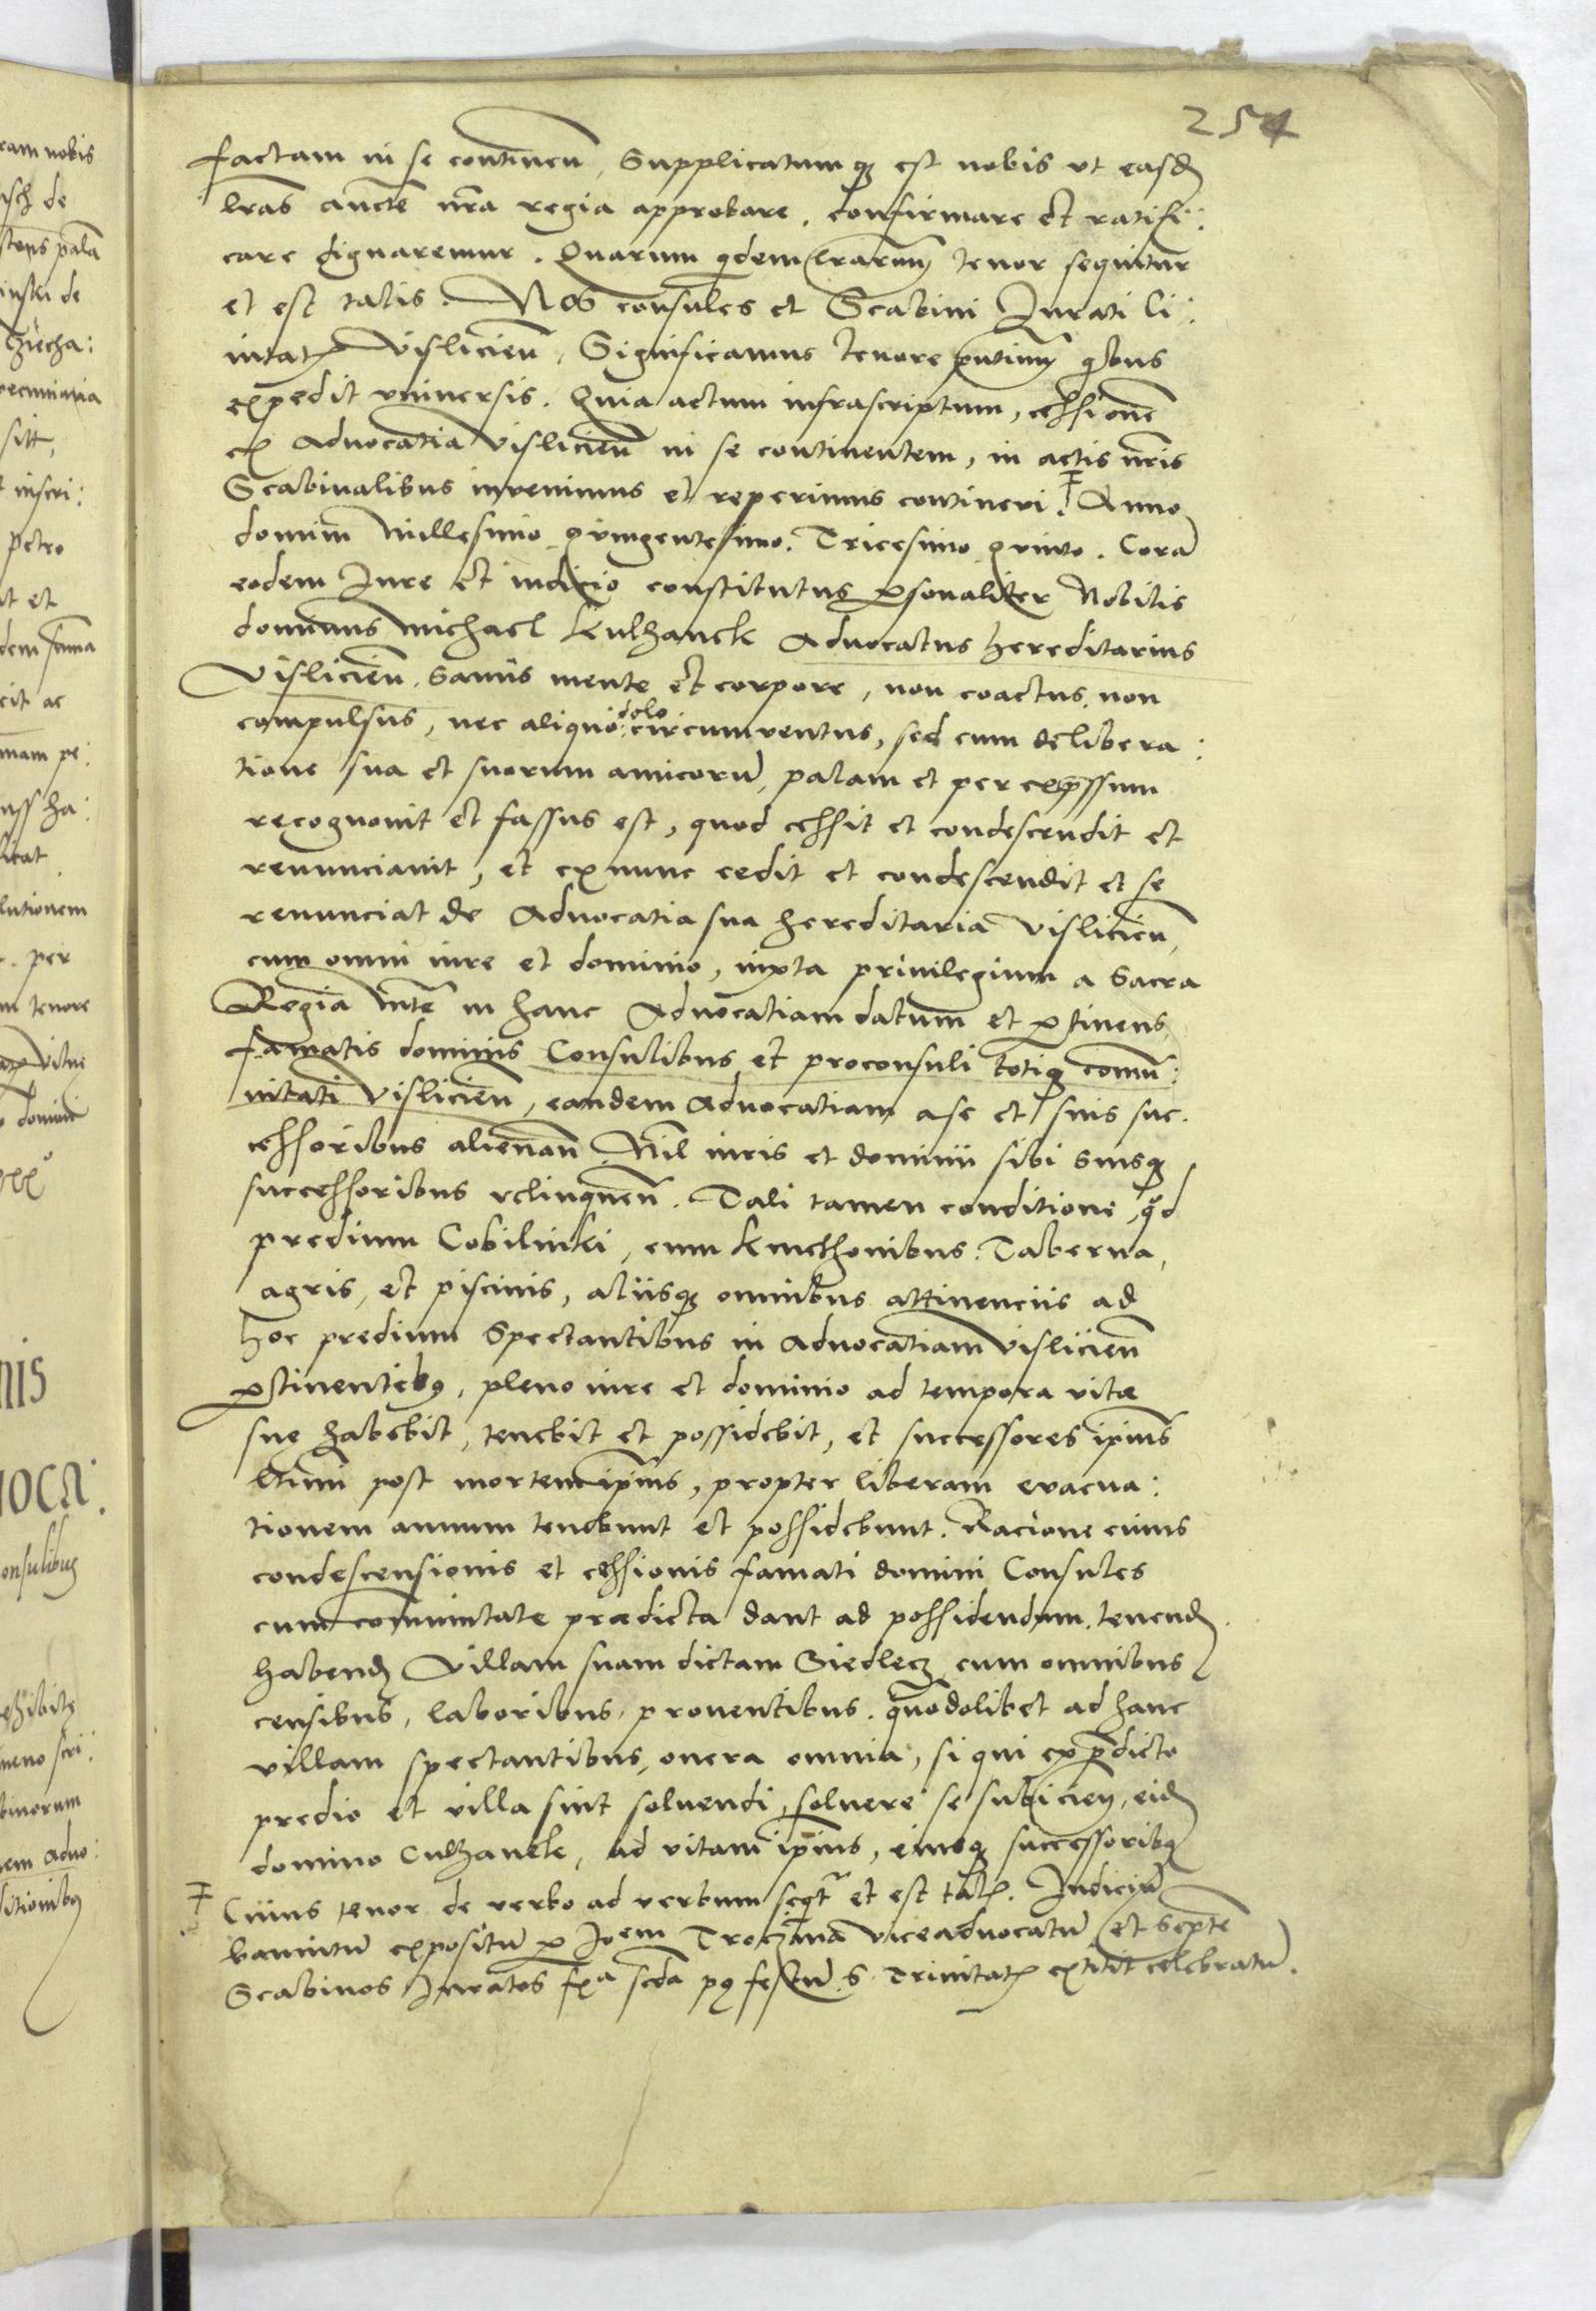 254
factam in se continen̄, Supplicatumq₃ est nobis ut easd̄
l̄ras auct̄e n̄ra regia approbare, confirmare et ratifi:
care dignaremur. Quarum q̇dem l̄rarum tenor sequitur
et est talis. Nos consules et Scabini Jurati Ci:
uitat̄ Vislicien̄, Significamus tenore p̄ntium q̇bus
expedit vniuersis. Quia actum infrascriptum, cessionē
ex Aduocatia Vislicien̄ in se continentem, in actis n̄ris
Scabinalibus inuenimus et reperimus contineri ‡. Anno
domini Millesimo quingentesimo. Tricesimo quinto. Corā
eodem Jure et iudicio constitutus ꝑsonaliter Nobilis
dominus Michael Kulhanek Aduocatus hereditarius
Vislicien̄. Sanus mente et corpore, non coactus, non
compulsus, nec aliquo dolo circumuentus, sed cum delibera:
tione sua et suorum amicorū, palam et per exp̄ssum
recognouit et fassus est, quod cessit et condescendit et
renunciauit, et ex nunc cedit et condescendit et se
renunciat de Aduocatia sua hereditaria Vislicien̄,
cum omni iure et dominio, iuxta priuilegium a Sacra
Regia M̄te in hanc Aduocatiam datum et ꝑtinens,
famatis dominis Consulibus et proconsuli totiq₃ comū:
nitati Vislicien̄, eandem Aduocatiam a se et suis suc:
cessoribus alienan̄. Nil iuris et dominii sibi Suisq₃
successoribus relinquen̄. Tali tamen conditione, qd̄
predium Cobilinki, cum kmethonibus. Taberna,
agris, et piscinis, aliisq₃ omnibus attinenciis ad
hoc predium Spectantibus in Aduocatiam Vislicien̄
ꝑtinentib₉, pleno iure et dominio ad tempora vitæ
suę habebit, tenebit et possidebit, et successores ip̄ius
l̄timi post mortem ip̄ius, propter liberam euacua:
tionem annum tenebunt et possidebunt. Racione cuius
condescensionis et cessionis famati domini Consules
cum comunitate prædicta dant ad possidendum, tenend̄
habend̄ Villam suam dictam Siedlecz cum omnibus
censibus, laboribus, prouentibus, quomodolibet ad hanc
villam spectantibus, onera omnia, si qui ex p̄dicto
predio et villa sint soluendi, soluere se subicien̄, eid̄
domino Culhanek, ad vitam ip̄ius, eiusq₃ successorib₉
‡ Cuius tenor de verbo ad verbum seq̇t̄ et est tal̄. Judiciū
bannitū expositū ꝑ Jo<sup>em</sup> Troczana viceaduocatū et Septē
Scabinos Juratos f<sup>a</sup> scda p₉ festū S. Trinitat̄ extitit celebratū.